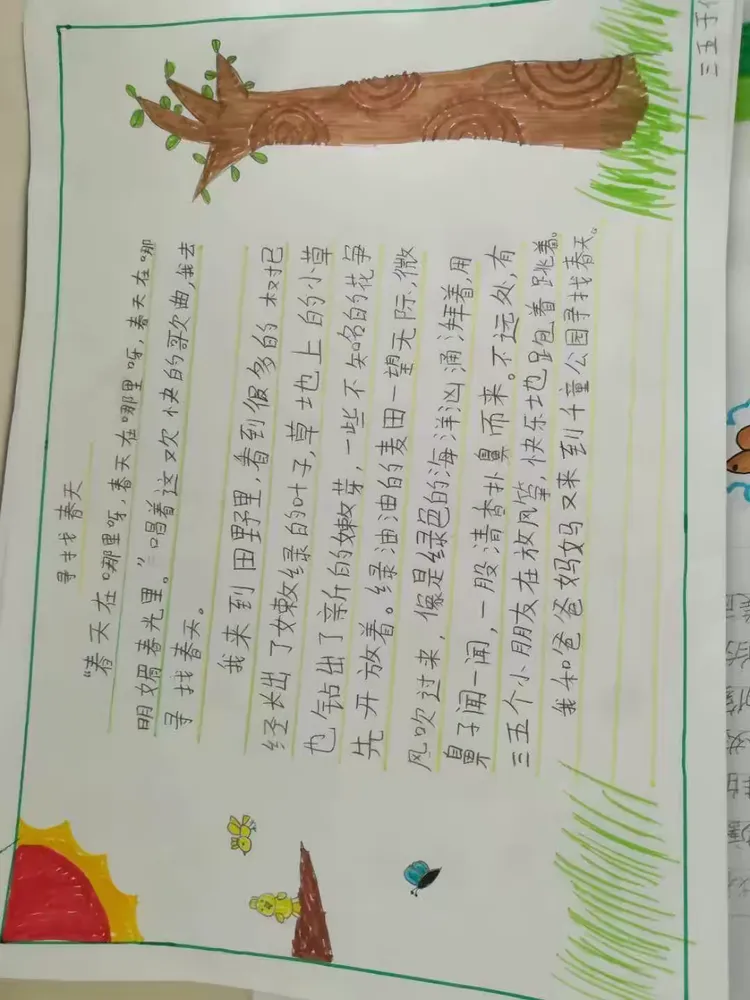 寻找春天
“春天在哪里呀，春天在哪里呀，春天在哪
明媚春光里。”唱着这欢快的歌曲，我去
寻找春天。
我来到田野里，看到很多的树已
经长出了嫩绿的叶子，草地上的小草
也钻出了新的嫩芽，一些不知名的花争
先开放着。绿油油的麦田一望无际，微
风吹过来，像是绿色的海洋汹涌湃着，用
鼻子闻一闻，一股清香扑鼻而来。不远处，有
三五个小朋友在放风筝，快乐地跑着跳着。
我和爸爸妈妈又来到千童公园寻找春天。
三五